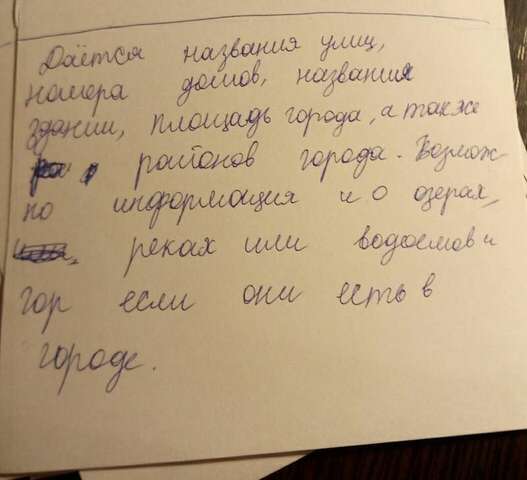 Даётся названия улиц,
номера домов, названия
здании, площадь города, а также
районов города. Возмож-
но информация и о озерах,
реках или водоемов и
гор если они есть в
городе.